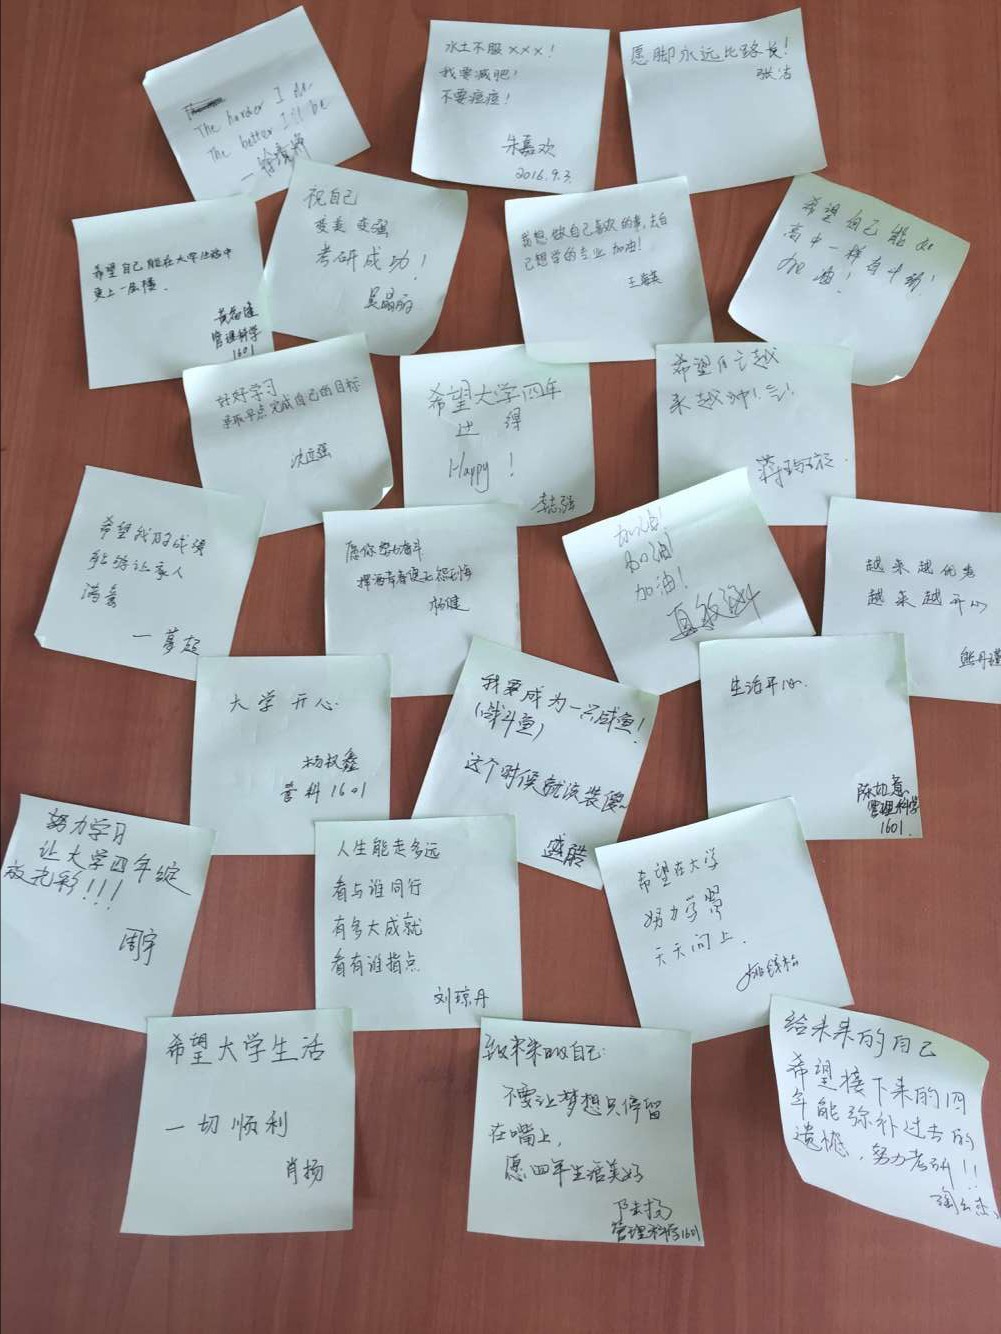 The harder I do
The better I'll be
水土不服×××！
我要减肥！
不要痘痘！
朱嘉欢
2016.9.3.
愿脚永远比路长！
张洁
希望自己能在大学生活中
更上一层楼.
管理科学
1601
祝自己
变美 变强
考研成功！
吴晶丽
我想做自己喜欢的事,去自
己想学的专业 加油！
希望自己能如
高中一样有斗劲！
加油！
好好学习
争取早点完成自己的目标
希望大学四年
过得
Happy！
李志强
希望自己越
来越帅气！
希望我的成绩
能够让家人
满意
愿你努力奋斗
挥洒青春便无怨无悔
杨健
加油！
加油！
加油！
越来越优秀
越来越开心
熊丹瑾
大学开心.
杨权鑫
管科1601
我要成为一只咸鱼！
（战斗鱼）
这个时候就该装傻~
盛皓
生活开心.
管理科学
1601.
努力学习
让大学四年绽
放光彩！！！
周宇
人生能走多远
看与谁同行
有多大成就
看有谁指点
刘琼丹
希望在大学
努力学习
天天向上.
希望大学生活
一切顺利
肖扬
致未来的自己:
不要让梦想只停留
在嘴上,
愿四年生活美好
管理科学1601
给未来的自己
希望接下来的四
年能弥补过去的
遗憾，努力考研！！